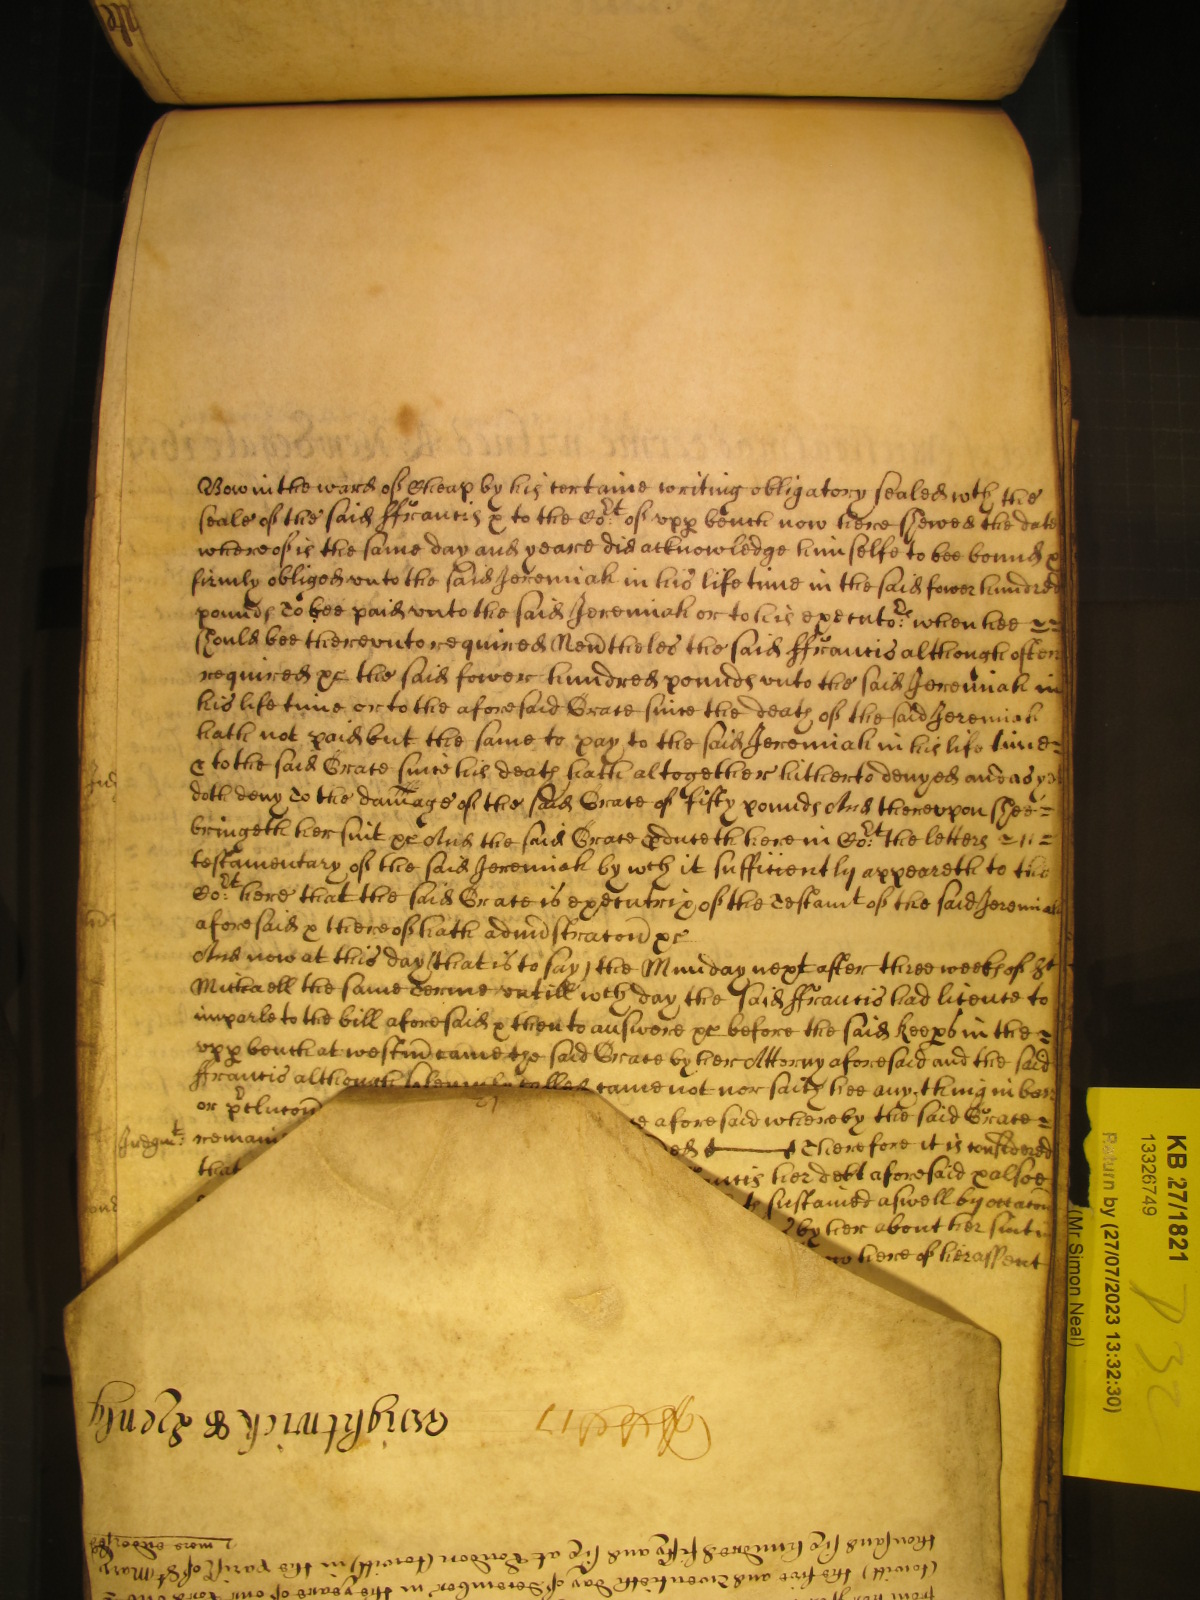 Bow in the ward of Cheap by his certaine writing obligatory sealed wth the
seale of the said ffrancis & to the Cort of upp bench now here shewed the date
whereof is the same day and yeare did acknowledge himselfe to bee bound &
firmly obliged unto the said Jeremiah in his life time in the said fower hundred
pounds To bee paid unto the said Jeremiah or to his executors when hee
should bee thereunto required Nevtheles the said ffrancis although often
required &c the said fower hundred pounds unto the said Jeremiah in
his life time or to the aforesaid Grace since the death of the said Jeremiah
hath not paid but the same to pay to the said Jeremiah in his life time
& to the said Grace since his death hath altogether hitherto denyed and as yet
doth deny To the damage of the said Grace of fifty pounds And thereupon shee
bringeth her suit &c And the said Grace pduceth here in Cort the letters
testamentary of the said Jeremiah by wch it sufficiently appeareth to the
Cort here that the said Grace is executrix of the Testamt of the said Jeremiah
aforesaid & thereof hath administracon &c
And now at this day (that is to say) the Munday next after three weeks of St
Michaell the same Terme untill wch day the said ffrancis had licence to
imparle to the bill aforesaid & then to answere &c before the said Keepers in the
upp bench at westm came the said Grace by her Attorny aforesaid and the said
ffrancis although solemnly called came not nor saith hee any thing in barr
or pclucon aforesaid whereby the said Grace
Judgmt: remain Therefore it is considered
that her debt aforesaid & alsoe
sustained aswell by occacon
by her about her suit
here of her assent
Wightwick & Henly
thousand six hundred fifty and six at London (to witt) in the parish of St Mary
(to witt) the five and twentieth day of december in the yeare of our Lord one
KB 27/1821
13326749
Return by (27/07/2023 13:32:30)
(Mr Simon Neal)
P 32